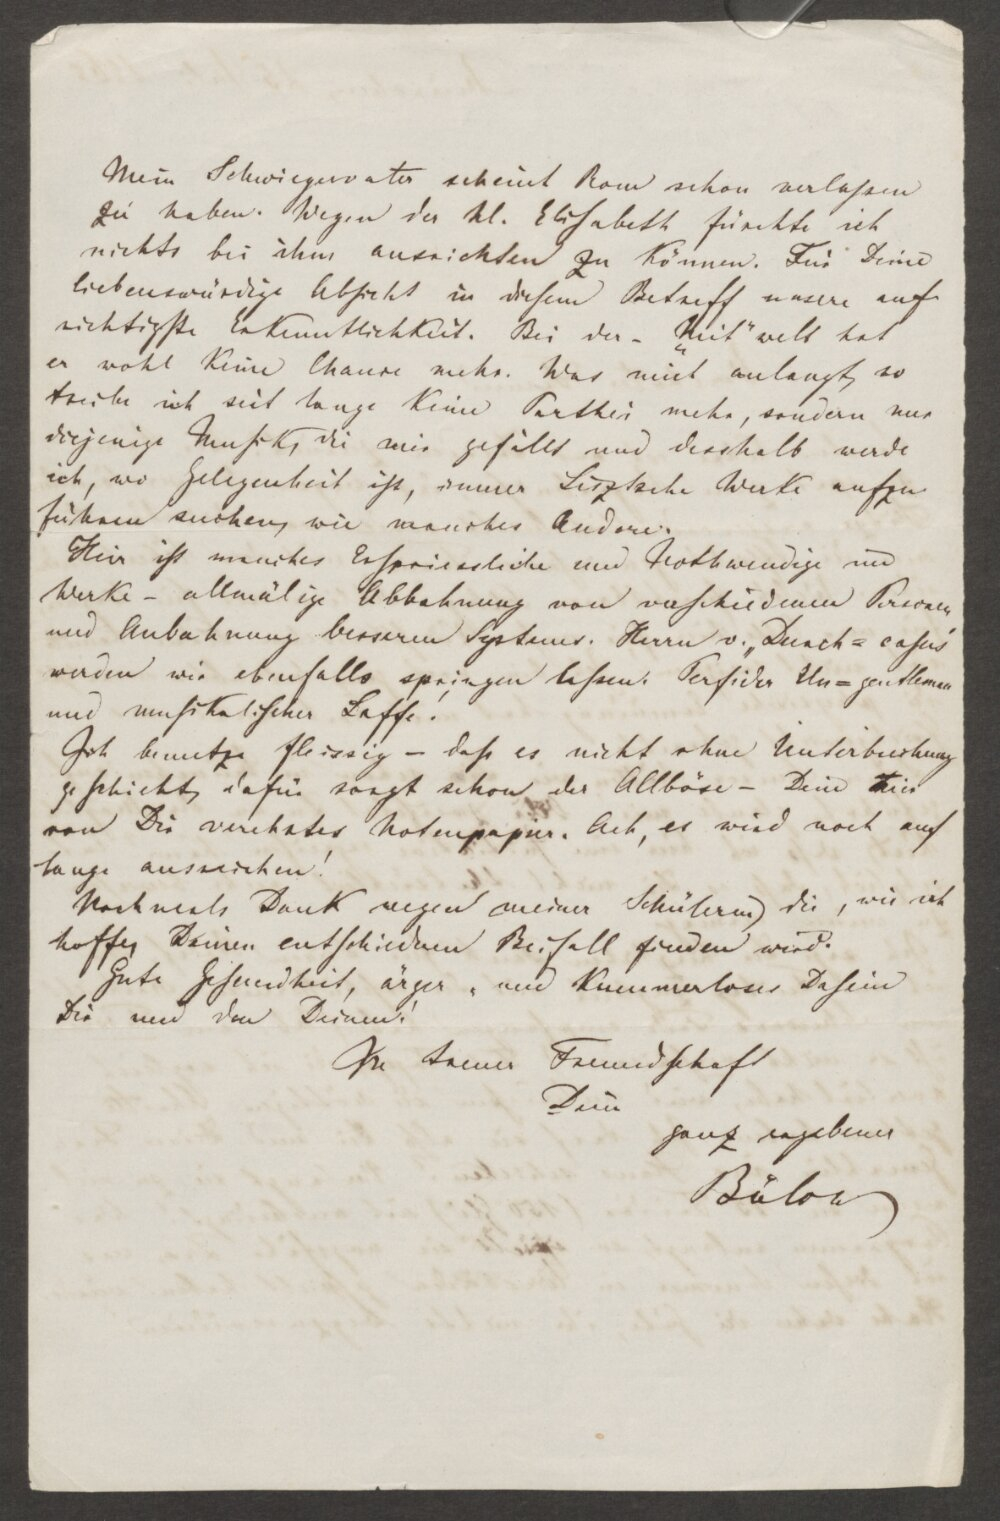 Mein Schwiegervater scheint Rom schon verlassen
zu haben. Wegen der hl. Elisabeth fürchte ich
nichts bei ihm ausrichten zu können. Für Deine
liebenswürdige Absicht in diesem Betreff unsere auf-
richtigste Erkenntlichkeit. Bei der - „Mit“welt hat
er wohl keine Chance mehr. Was mich anlangt, so
treibe ich seit lange keine Parthei mehr, sondern nur
diejenige Musik, die mir gefällt und desshalb werde
ich, wo Gelegenheit ist, immer Lisztsche Werke aufzu
führen suchen, wie manches Andere.
Hier ist manches Erspriessliche und Nothwendige im
Werke - allmälige Abbahnung von verschiedenen Personen
und Anbahnung besseren Systems. Herrn v.
werden wir ebenfalls springen lassen. Perfider Un=gentleman
und musikalischer Laffe!
Ich benutze fleissig - dass es nicht ohne Unterbrechung
geschieht, dafür sorgt schon der Allböse - Dein mir
von Dir verehrtes Notenpapier. Ach, es wird noch auf
lange ausreichen!
Nochmals Dank wegen meiner Schülerin, die, wie ich
hoffe, Deinen entschiednen Beifall finden wird.
Gute Gesundheit, ärger- und kummerloses Dasein
Dir und den Deinen!
In treuer Freundschaft
Dein
ganz ergebener
Bülow